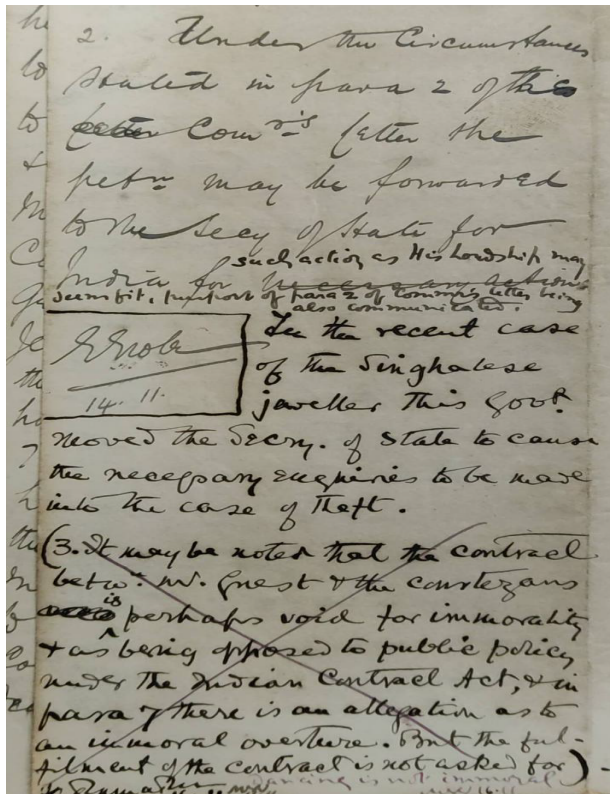 2. Under the Circumstances
stated in para 2 of the
letter Comr's letter the
petn may be forwarded
to the Secy of State for
such action as His Lordship may
India for necessary action
seem fit, purport of para 2 of Commr's letter being
also communicated.
In the recent case
of the Singhalese
14. 11.
jeweller this Govt.
moved the Secry. of State to cause
the necessary enquiries to be made
into the case of theft.
(3. It may be noted that the contract
betwn. Mr. Guest & the courtezans
is
perhaps void for immorality
& as being opposed to public policy
under the Indian Contract Act, & in
para 7 there is an allegation as to
an immoral overture. But the ful-
filment of the contract is not asked for)
dancing is not immoral